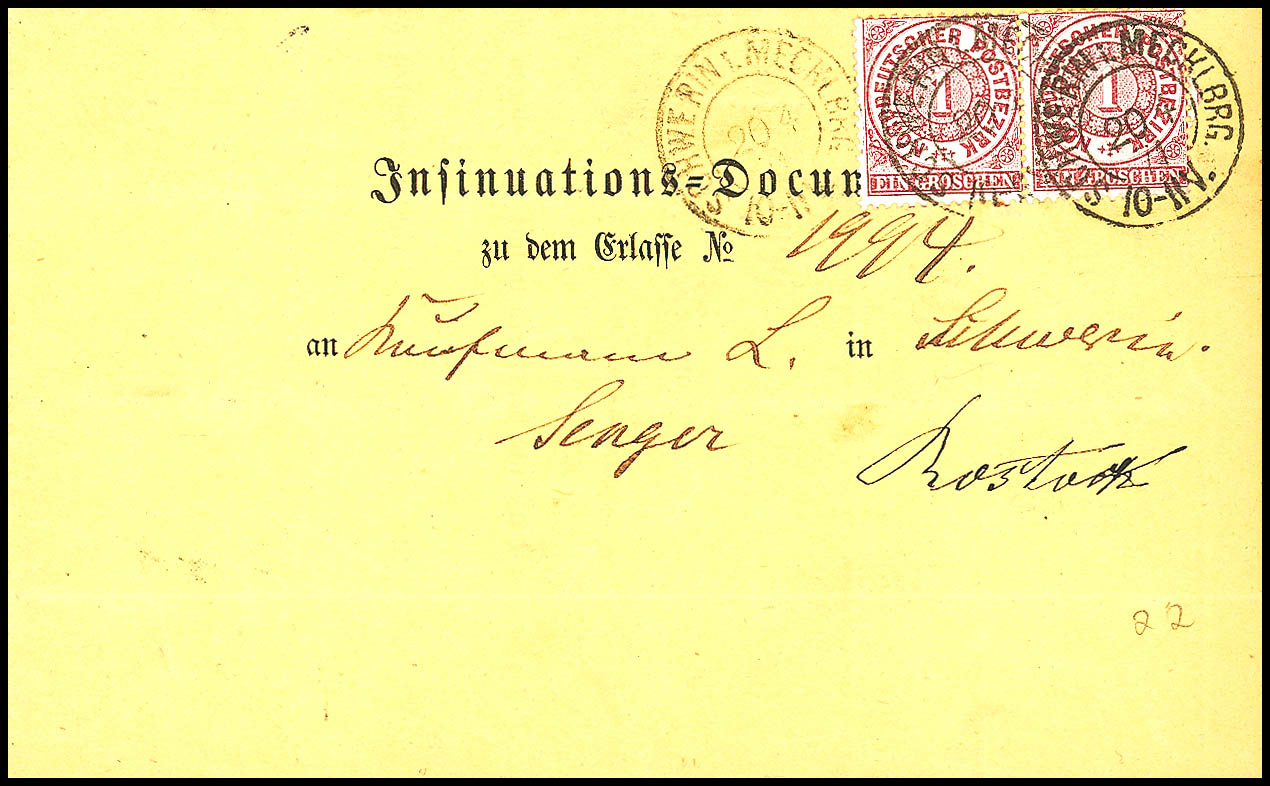 SCHWERIN I. MECKLBRG.
20 4
10-11V.
NORDDEUTSCHER POSTBEZIRK
1
EIN GROSCHEN
NORDDEUTSCHER POSTBEZIRK
1
EIN GROSCHEN
SCHWERIN I. MECKLBRG.
20 4
10-11V.
Insinuations-Docum
zu dem Erlasse № 1994.
an Kaufmann L. in Schwerin.
Senger
Rostock
22